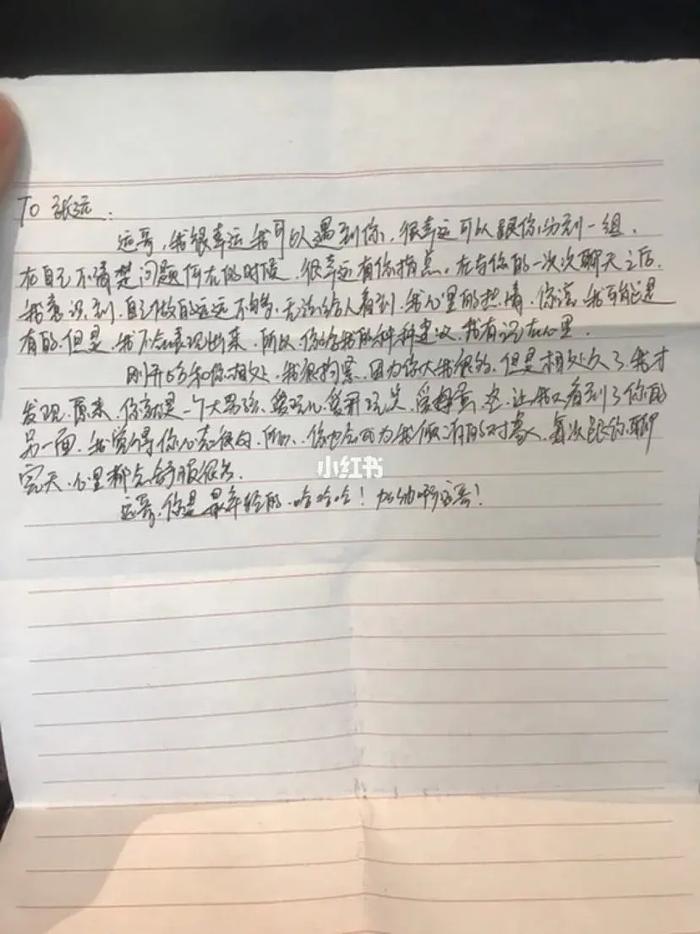 To 张远:
远哥,我很幸运我可以遇到你,很幸运可以跟你分到一组,
在自己不清楚问题何在的时候,很幸运有你指点,在与你的一次次聊天之后,
我意识到,自己做的远远不够,无法给人看到,我心里的热情,你说,我可能是
有的,但是,我不会表现出来,所以,你给我的种种建议,我有记在心里.
刚开始和你相处,我很拘紧,因为你大我很多,但是相处久了,我才
发现,原来,你就是一个大男孩,爱玩儿,爱开玩笑,爱,这,让我又看到了你的
另一面,我觉得你心态很好,所以,你也会成为我倾的对象,每次跟你聊
完天,心里都会舒服很多.
远哥,你是最年轻的,哈哈哈!加油啊远哥!
小红书